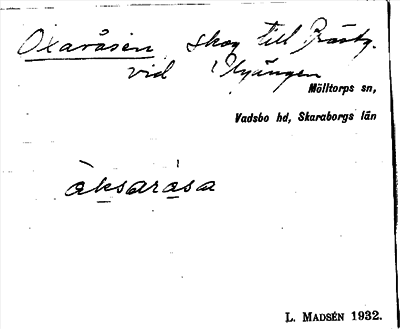 Oxaråsen skog till Prästg.
vid Nyängen
Mölltorps sn,
Vadsbo hd, Skaraborgs län
àksarása
L. MADSÉN 1932.